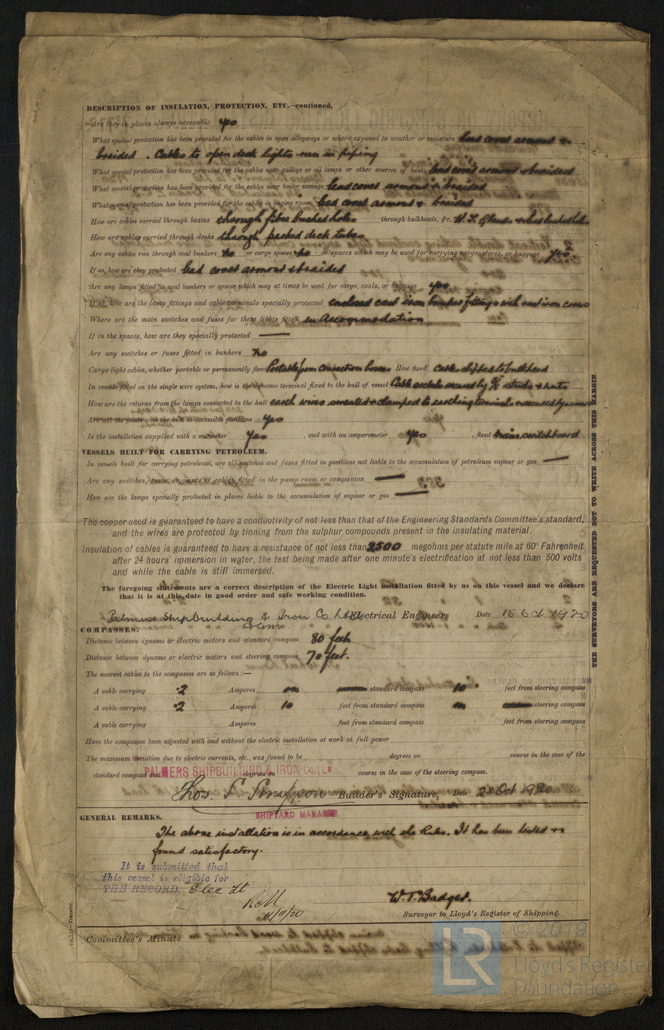 DESCRIPTION OF INSULATION, PROTECTION, ETC.—continued.
Are they in places always accessible yes
What special protection has been provided for the cables in open alleyways or where exposed to weather or moisture lead cover armour &
braided. Cables to open deck lights run in piping
What special protection has been provided for the cables near galleys or oil lamps or other sources of heat lead cover armour & braided
What special protection has been provided for the cables near boiler casings lead cover armour & braided
What special protection has been provided for the cables in engine room lead cover armour & braided
How are cables carried through beams through fibre bushed holes through bulkheads, &c. W.T. Glands &
How are cables carried through decks through packed deck tubes
Are any cables run through coal bunkers no or cargo spaces no or spaces which may be used for carrying cargo, stores, or baggage yes
If so, how are they protected lead cover armour & braided
Are any lamps fitted in coal bunkers or spaces which may at times be used for cargo, coals, or baggage yes
If so, how are the lamp fittings and cable terminals specially protected enclosed cast iron bunker fittings with cast iron covers
Where are the main switches and fuses for these lights fitted in Accommodation
If in the spaces, how are they specially protected —
Are any switches or fuses fitted in bunkers no
Cargo light cables, whether portable or permanently fixed Portable from connection boxes How fixed cable clipped to bulkhead
In vessels fitted on the single wire system, how is the dynamo terminal fixed to the hull of vessel Cable sockets secured by studs & nuts
How are the returns from the lamps connected to the hull earth wires sweated & clamped to earthing terminal & secured by screws
Are all the joints with the hull in accessible positions yes
Is the installation supplied with a voltmeter yes , and with an amperemeter yes , fixed main switchboard
VESSELS BUILT FOR CARRYING PETROLEUM.
In vessels built for carrying petroleum, are all switches and fuses fitted in positions not liable to the accumulation of petroleum vapour or gas —
Are any switches, fuses, or joints of cables fitted in the pump room or companion —
How are the lamps specially protected in places liable to the accumulation of vapour or gas —
The copper used is guaranteed to have a conductivity of not less than that of the Engineering Standards Committee's standard,
and the wires are protected by tinning from the sulphur compounds present in the insulating material.
Insulation of cables is guaranteed to have a resistance of not less than 2500 megohms per statute mile at 60° Fahrenheit
after 24 hours' immersion in water, the test being made after one minute's electrification at not less than 500 volts
and while the cable is still immersed.
The foregoing statements are a correct description of the Electric Light installation fitted by us on this vessel and we declare
that it is at this date in good order and safe working condition.
Palmers Shipbuilding & Iron Co Ltd Electrical Engineers Date 15 Oct 1920
COMPASSES.
Distance between dynamo or electric motors and standard compass 80 feet
Distance between dynamo or electric motors and steering compass 70 feet.
The nearest cables to the compasses are as follows:—
A cable carrying .2 Amperes on standard compass 10 feet from steering compass
A cable carrying .2 Amperes 10 feet from standard compass on steering compass
A cable carrying Amperes feet from standard compass feet from steering compass
Have the compasses been adjusted with and without the electric installation at work at full power
The maximum deviation due to electric currents, etc., was found to be degrees on course in the case of the
standard compass and degrees on course in the case of the steering compass.
PALMERS SHIPBUILDING & IRON CO. LD.
Thos. Simpson Builder's Signature, Date 25 Oct 1920
SHIPYARD MANAGER
GENERAL REMARKS.
The above installation is in accordance with the Rules. It has been tested &
found satisfactory.
It is submitted that
this vessel is eligible for
THE RECORD. Elec Lt
W. T. Badger.
Surveyor to Lloyd's Register of Shipping.
Committee's Minute
THE SURVEYORS ARE REQUESTED NOT TO WRITE ACROSS THIS MARGIN.
© 2019
LR Lloyd's Register
Foundation